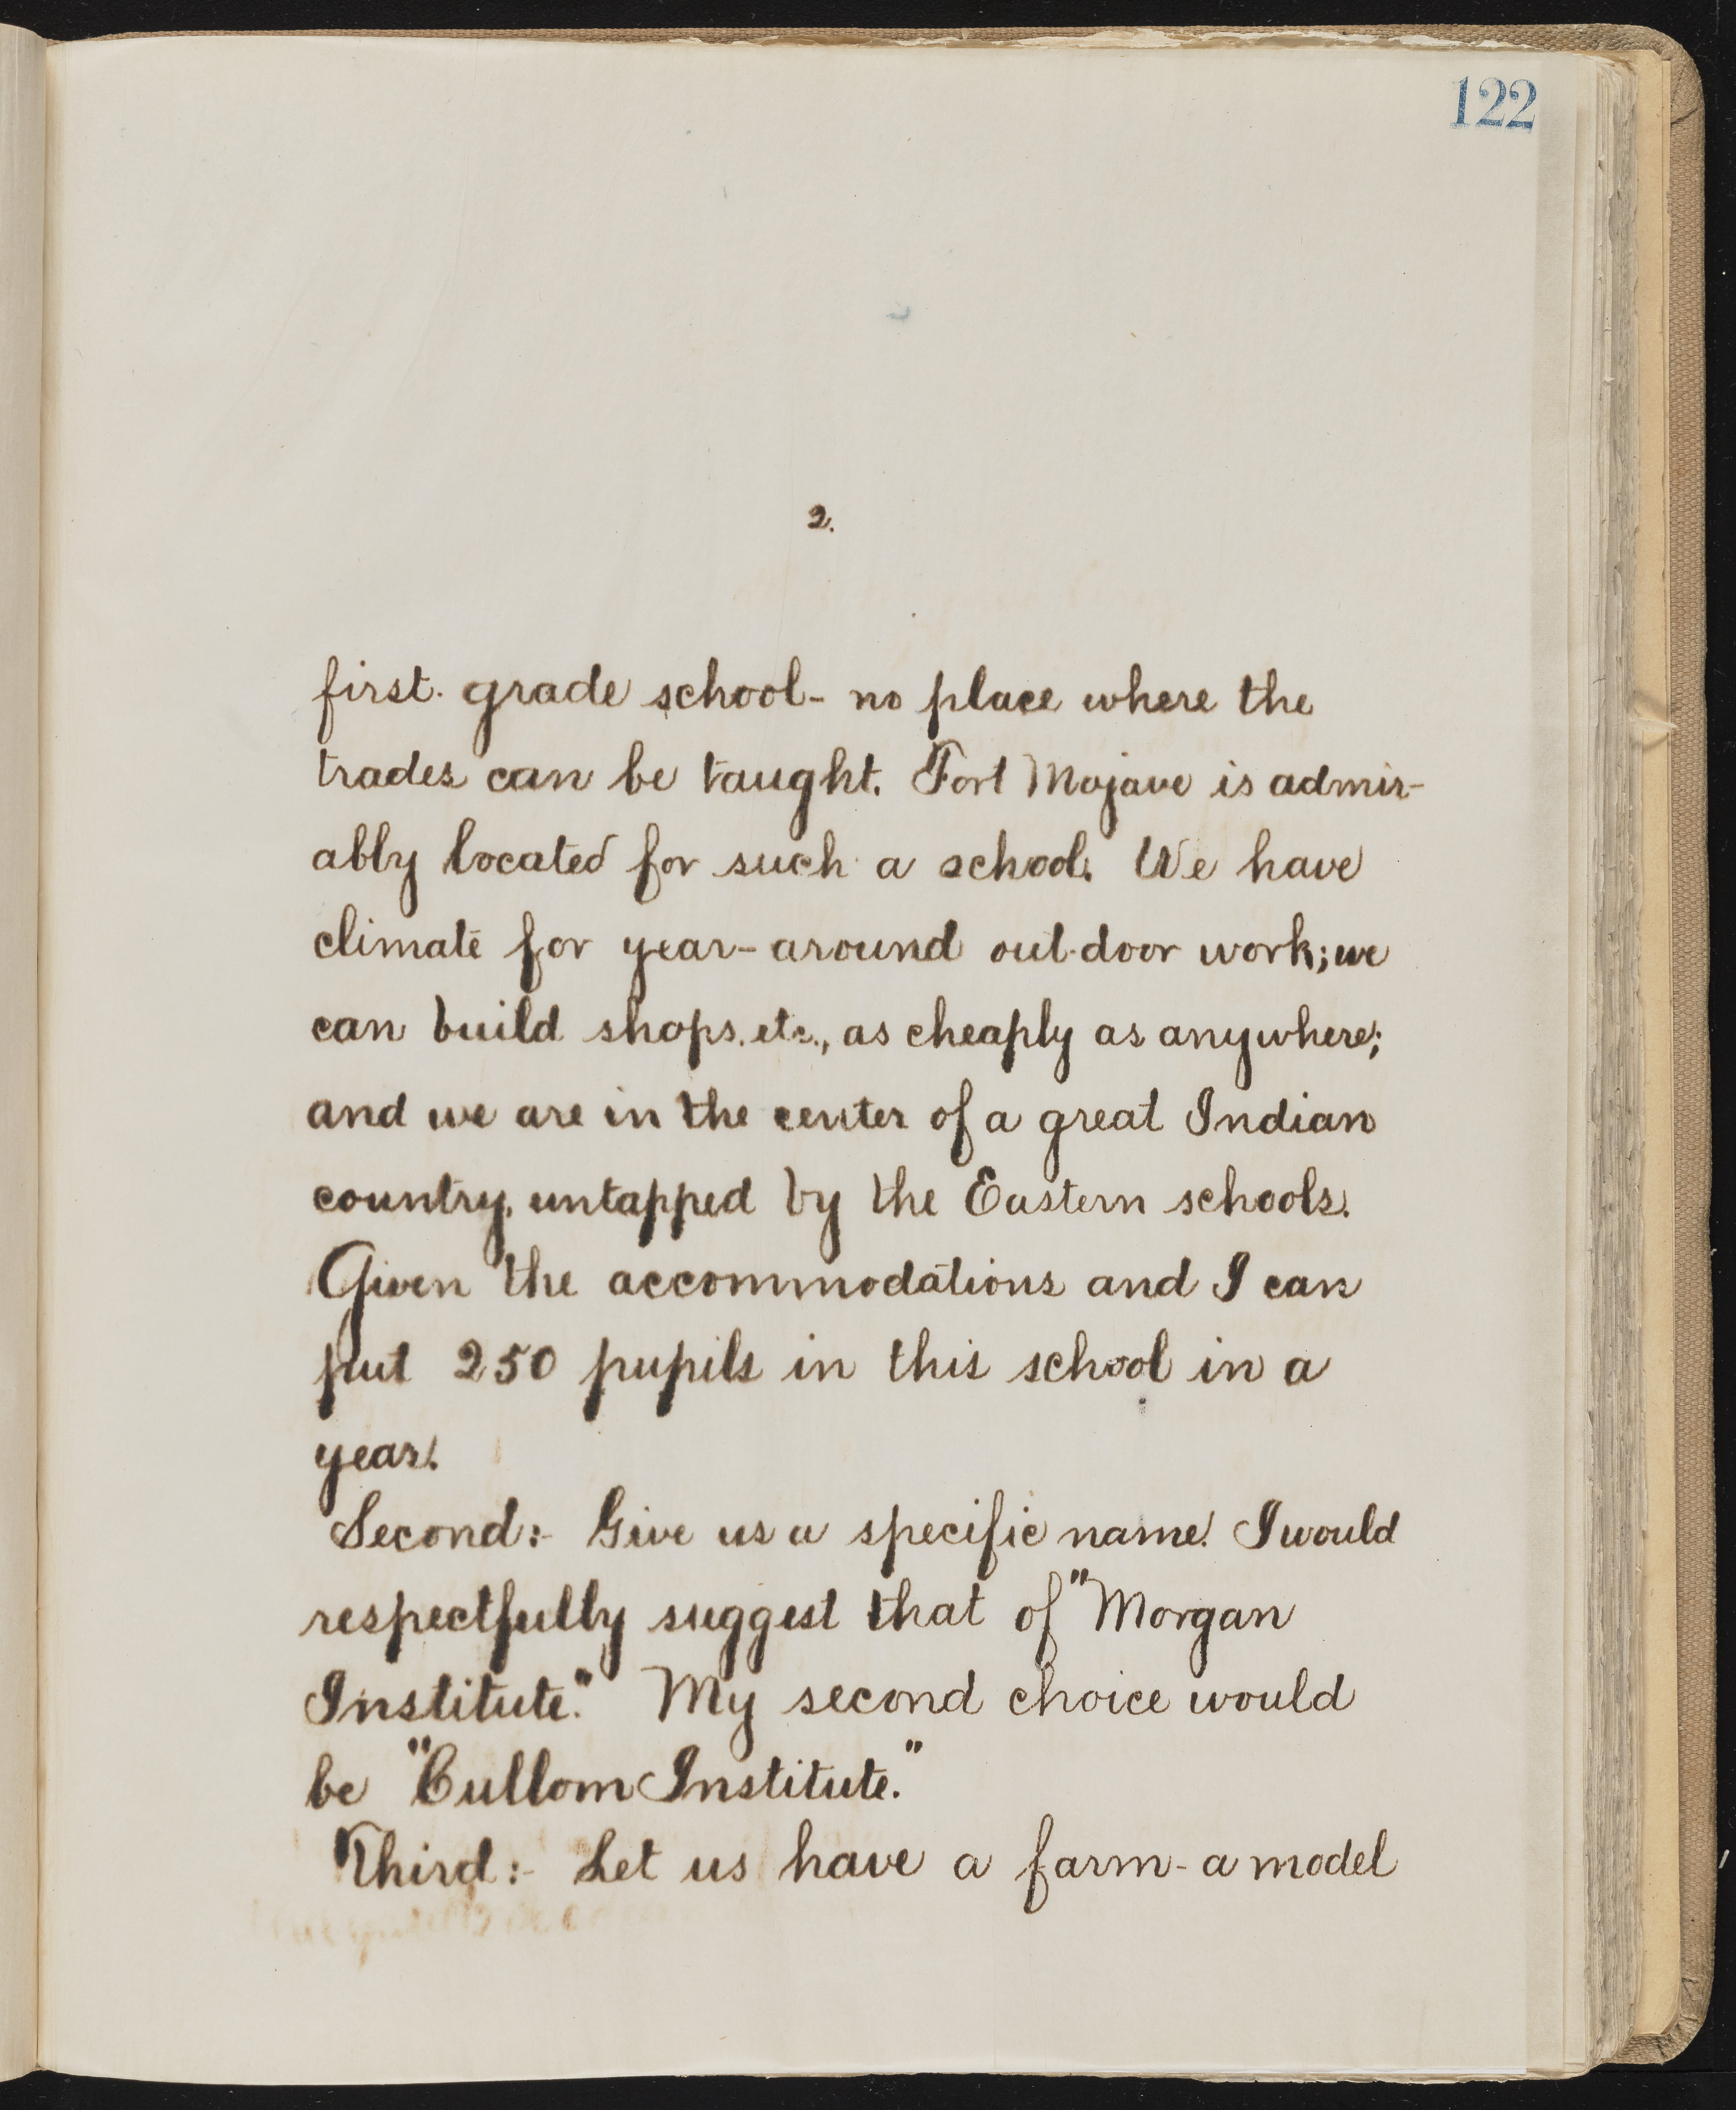 122
2.
first grade school- no place where the
trades can be taught. Fort Mojave is admir-
ably located for such a school. We have
climate for year-around out-door work; we
can build shops, etc., as cheaply as anywhere;
and we are in the center of a great Indian
country, untapped by the Eastern schools.
Given the accommodations and I can
put 250 pupils in this school in a
year.
Second:- Give us a specific name. I would
respectfully suggest that of "Morgan
Institute." My second choice would
be "Cullom Institute."
Third:- Let us have a farm- a model